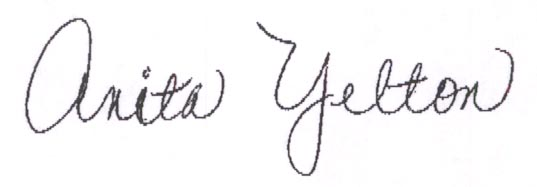 Anita Yelton